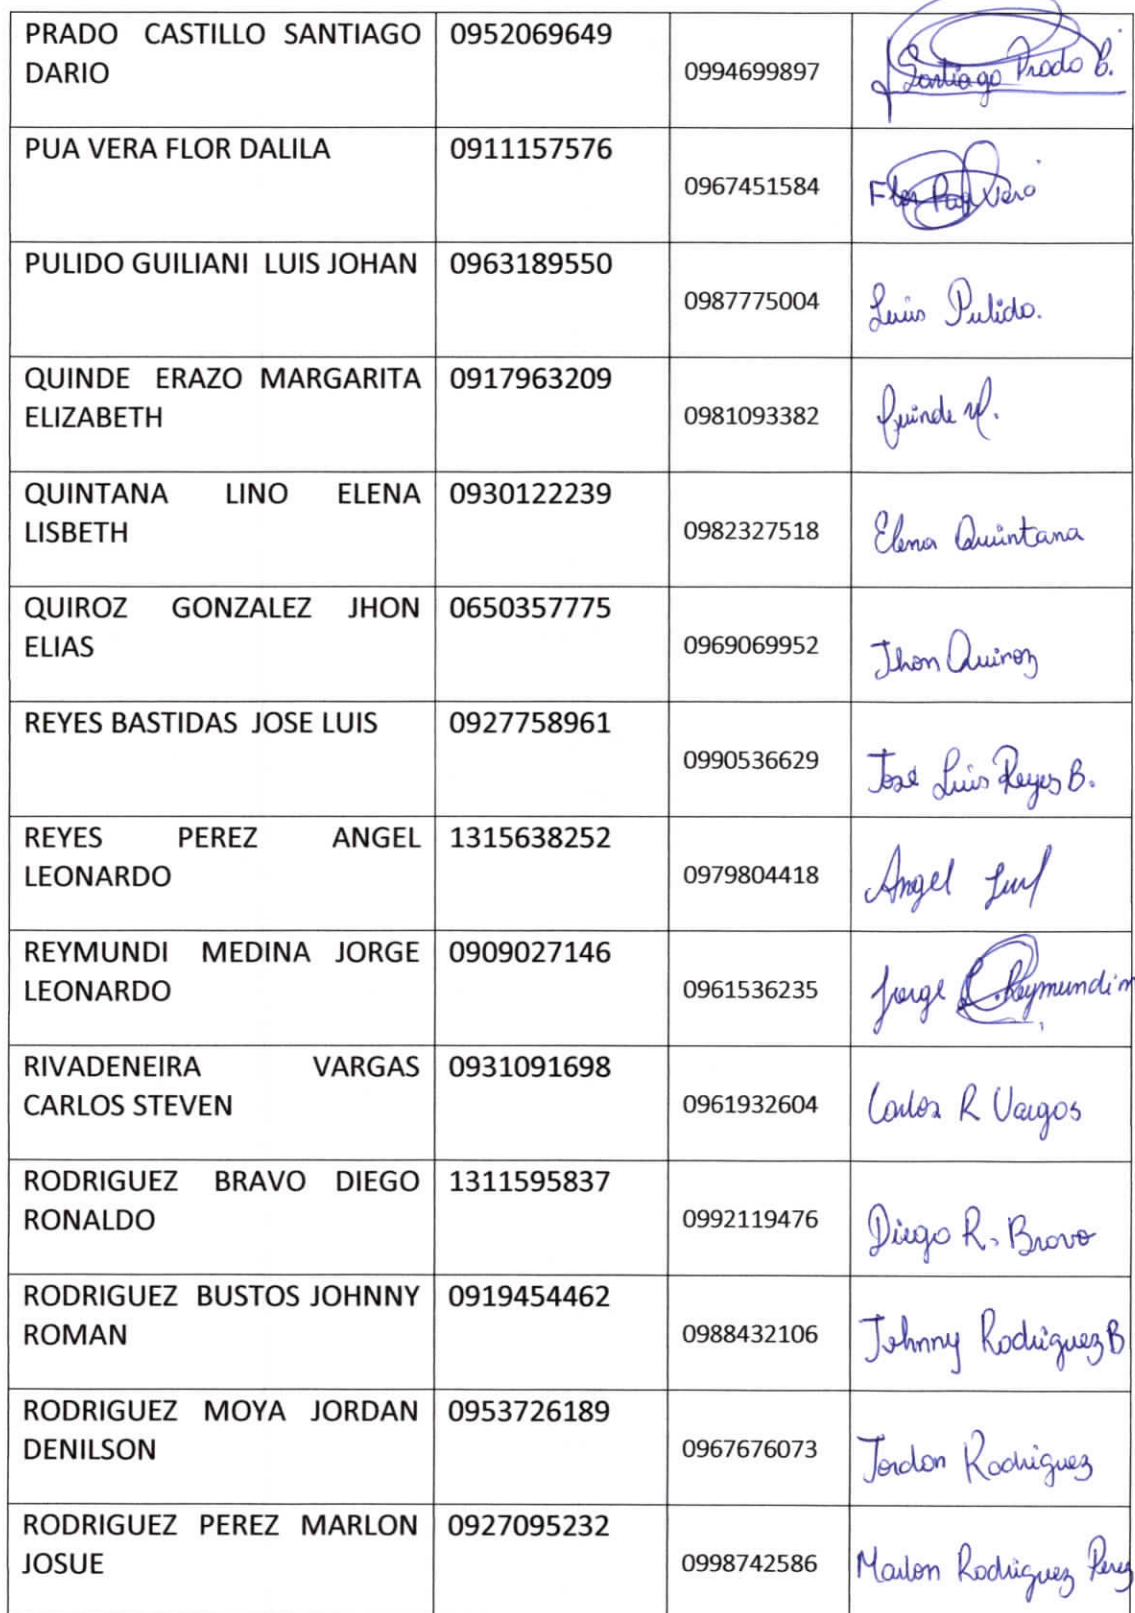 PRADO CASTILLO SANTIAGO DARIO 0952069649 0994699897 Santiago Prado C.
PUA VERA FLOR DALILA 0911157576 0967451584 Flor Pua Vera
PULIDO GUILIANI LUIS JOHAN 0963189550 0987775004 Luis Pulido.
QUINDE ERAZO MARGARITA ELIZABETH 0917963209 0981093382 Quinde M.
QUINTANA LINO ELENA LISBETH 0930122239 0982327518 Elena Quintana
QUIROZ GONZALEZ JHON ELIAS 0650357775 0969069952 Jhon Quiroz
REYES BASTIDAS JOSE LUIS 0927758961 0990536629 José Luis Reyes B.
REYES PEREZ ANGEL LEONARDO 1315638252 0979804418 Angel
REYMUNDI MEDINA JORGE LEONARDO 0909027146 0961536235 Jorge L. Reymundi m
RIVADENEIRA VARGAS CARLOS STEVEN 0931091698 0961932604 Carlos R Vargas
RODRIGUEZ BRAVO DIEGO RONALDO 1311595837 0992119476 Diego R. Bravo
RODRIGUEZ BUSTOS JOHNNY ROMAN 0919454462 0988432106 Johnny Rodriguez B
RODRIGUEZ MOYA JORDAN DENILSON 0953726189 0967676073 Jordan Rodriguez
RODRIGUEZ PEREZ MARLON JOSUE 0927095232 0998742586 Marlon Rodriguez Perez